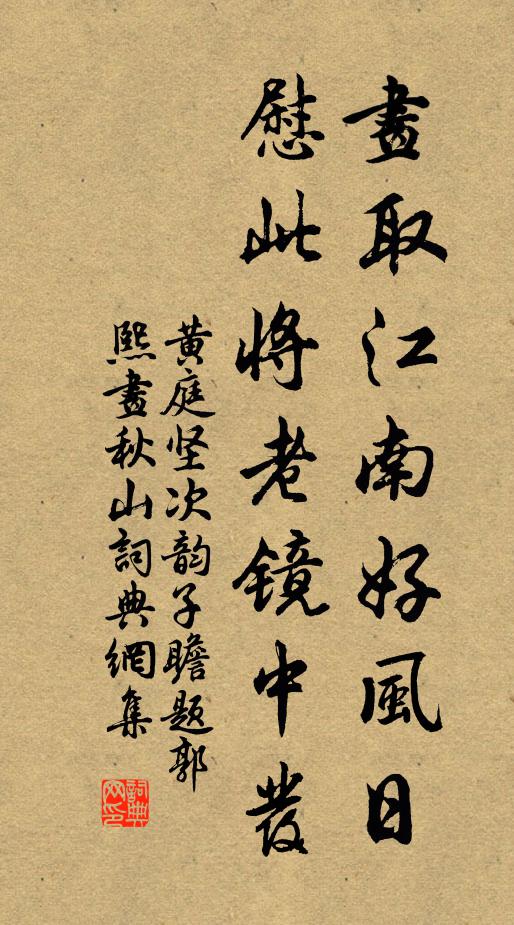 畫取江南好風日
慰此將老鏡中發
黄庭坚次韵子瞻题郭
熙畫秋山詞典網集
詞典
网印